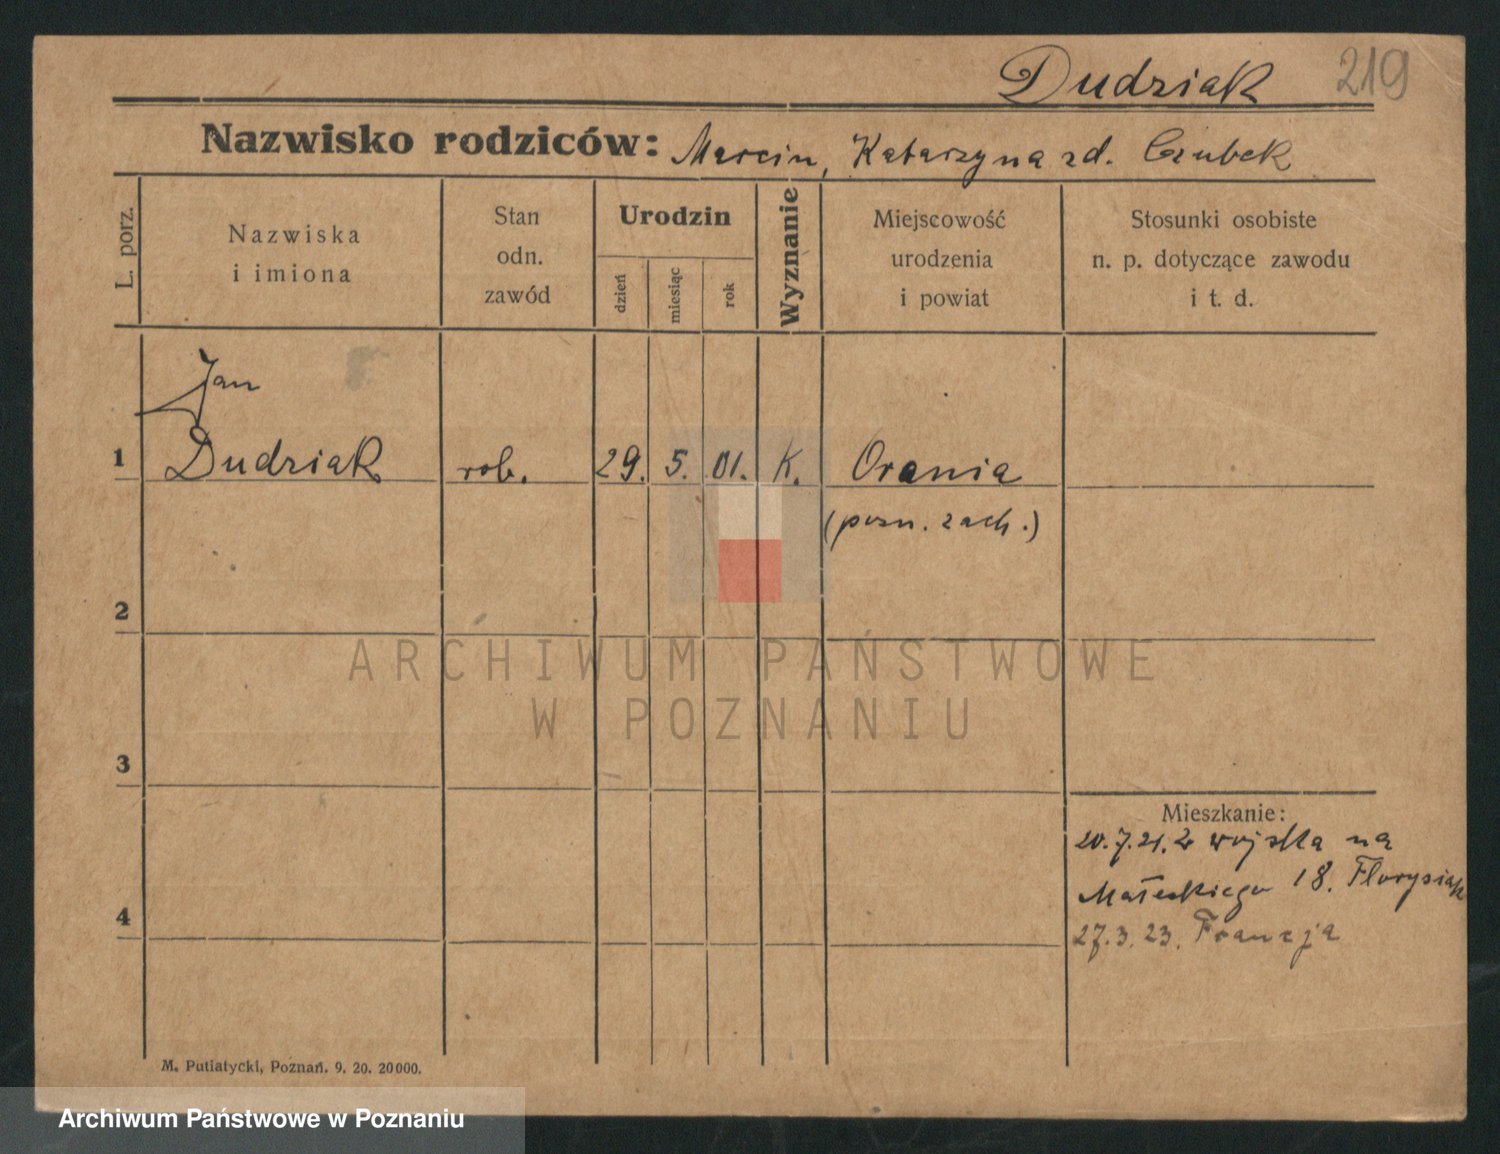 Dudziak 219
Nazwisko rodziców: Marcin, Katarzyna zd. Czubek
L. porz.
Nazwiska
i imiona
Stan
odn.
zawód
Urodzin
dzień
miesiąc
rok
Wyznanie
Miejscowość
urodzenia
i powiat
Stosunki osobiste
n. p. dotyczące zawodu
i t. d.
Jan
1 Dudziak rob. 29. 5. 01. K. Orania
(pozn. zach.)
2
ARCHIWUM PAŃSTWOWE
W POZNANIU
3
Mieszkanie:
20.7.21. z wojska na
Małeckiego 18. Florysiak
4
27.3.23. Francja
M. Putiatycki, Poznań. 9. 20. 20000.
Archiwum Państwowe w Poznaniu